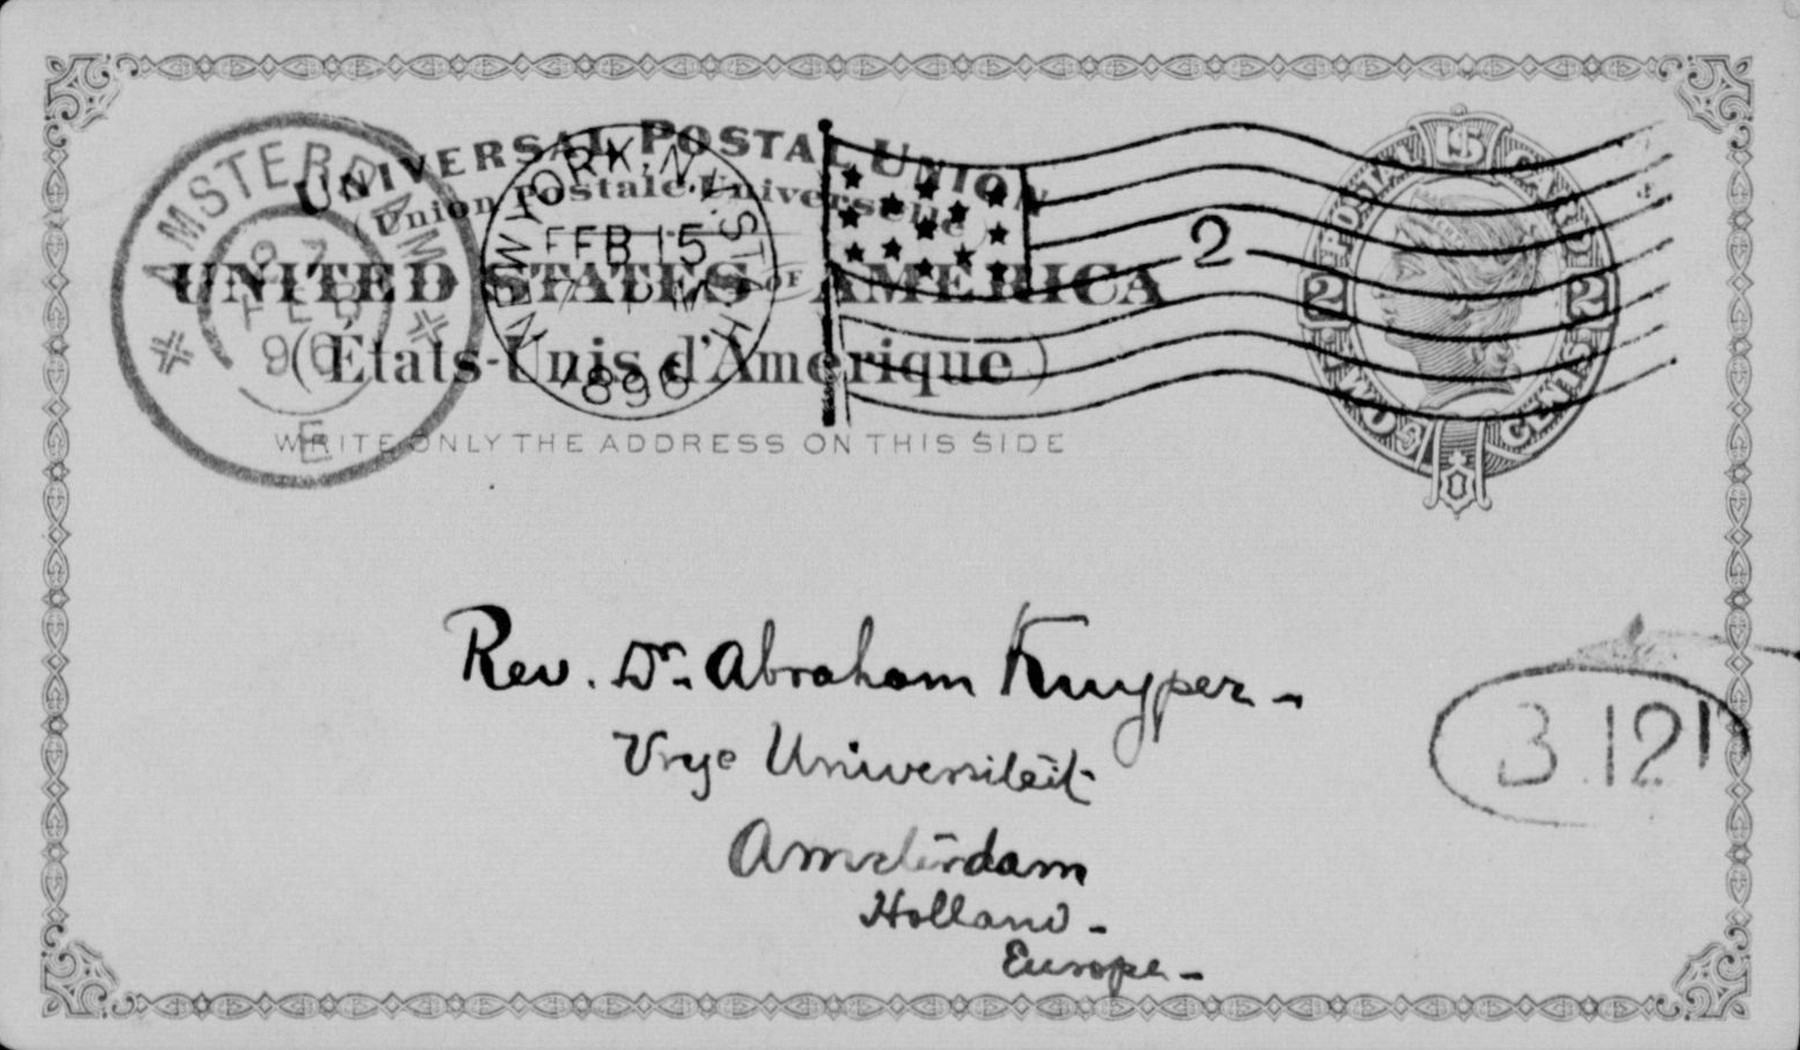 UNIVERSAL POSTAL UNION
(Union Postale Universelle)
UNITED STATES OF AMERICA
(États-Unis d'Amérique)
WRITE ONLY THE ADDRESS ON THIS SIDE
AMSTERDAM
27
FEB
96
E
NEW YORK, N.Y. STA. H
FEB 15
7 PM
1896
2
U.S. POSTAL CARD
2 2
TWO CENTS
Rev. Dr. Abraham Kuyper -
Vrye Universiteit
Amsterdam
Holland -
Europe -
3 121